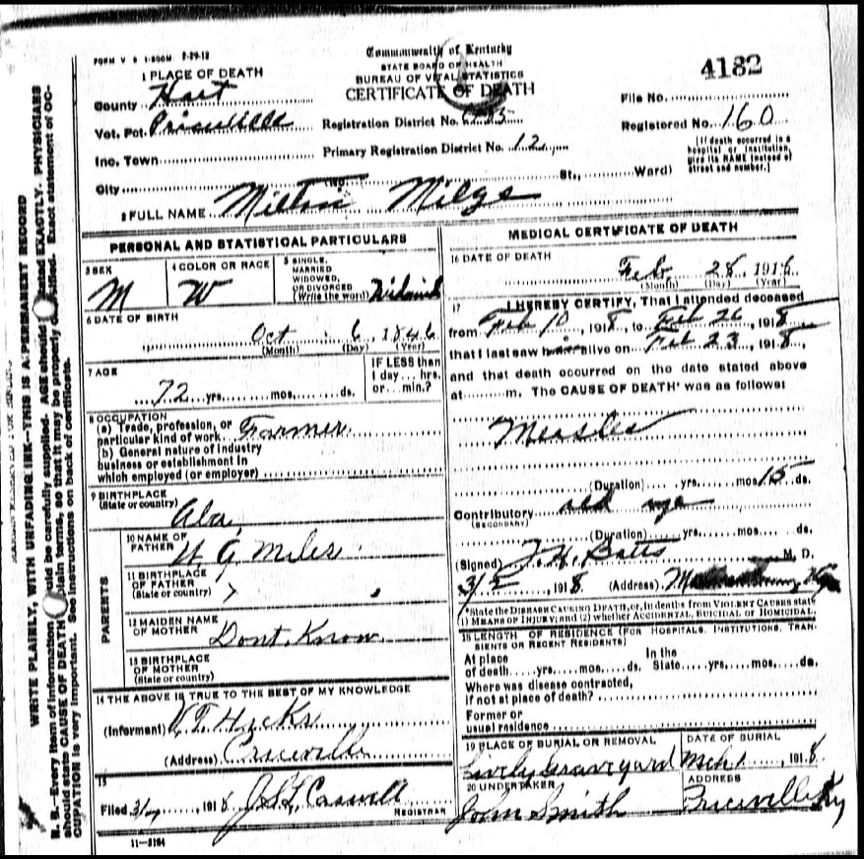 FORM V S 1-500M 2-29-12
Commonwealth of Kentucky
STATE BOARD OF HEALTH
BUREAU OF VITAL STATISTICS
CERTIFICATE OF DEATH
4182
1 PLACE OF DEATH
County Hart
Vot. Pct. Priceville
Inc. Town
City
Registration District No.
Primary Registration District No. 12
File No.
Registered No. 160
[If death occurred in a hospital or institution, give its NAME instead of street and number.]
No. St., Ward)
2 FULL NAME Milton
PERSONAL AND STATISTICAL PARTICULARS
3 SEX M
4 COLOR OR RACE W
5 SINGLE, MARRIED WIDOWED, OR DIVORCED (Write the word)
6 DATE OF BIRTH
Oct 6, 1846
(Month) (Day) (Year)
7 AGE
72 yrs. mos. ds.
IF LESS than 1 day... hrs. or... min.?
8 OCCUPATION
(a) Trade, profession, or particular kind of work Farmer
(b) General nature of industry
business or establishment in
which employed (or employer)
9 BIRTHPLACE
(State or country) Ala
PARENTS
10 NAME OF FATHER Miles
11 BIRTHPLACE OF FATHER (State or country) ?
12 MAIDEN NAME OF MOTHER Dont Know
13 BIRTHPLACE OF MOTHER (State or country)
14 THE ABOVE IS TRUE TO THE BEST OF MY KNOWLEDGE
(Informant)
(Address) Priceville
15
Filed 3/7, 1918 Caswell
REGISTRAR
11-3184
MEDICAL CERTIFICATE OF DEATH
16 DATE OF DEATH
Feb 28 1918
(Month) (Day) (Year)
17 I HEREBY CERTIFY, That I attended deceased
from Feb 10, 1918, to Feb 26, 1918
that I last saw him alive on Feb 23, 1918,
and that death occurred on the date stated above
at m. The CAUSE OF DEATH* was as follows:
Measles
(Duration) yrs. mos 15 ds.
Contributory old age
(SECONDARY)
(Duration) yrs. mos. ds.
(Signed) Batts M. D.
3/5, 1918 (Address)
*State the DISEASE CAUSING DEATH, or, in deaths from VIOLENT CAUSES state
(1) MEANS OF INJURY; and (2) whether ACCIDENTAL, SUICIDAL or HOMICIDAL.
18 LENGTH OF RESIDENCE (FOR HOSPITALS, INSTITUTIONS, TRAN-
SIENTS OR RECENT RESIDENTS)
At place of death yrs. mos. ds. In the State yrs. mos. ds.
Where was disease contracted,
if not at place of death?
Former or
usual residence
19 PLACE OF BURIAL OR REMOVAL
Lively Graveyard
DATE OF BURIAL
Mch 1, 1918
20 UNDERTAKER
John Smith
ADDRESS
Priceville Ky
WRITE PLAINLY, WITH UNFADING INK—THIS IS A PERMANENT RECORD
N. B.—Every item of information should be carefully supplied. AGE should be stated EXACTLY. PHYSICIANS
should state CAUSE OF DEATH in plain terms, so that it may be properly classified. Exact statement of OC-
CUPATION is very important. See instructions on back of certificate.